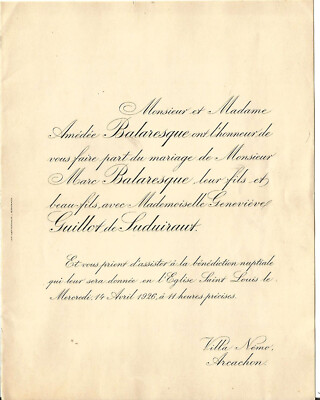 Monsieur et Madame
Amédée Balaresque ont l'honneur de
vous faire part du mariage de Monsieur
Marc Balaresque, leur fils et
beau-fils, avec Mademoiselle Geneviève
Guillot de Suduiraut.
Et vous prient d'assister à la bénédiction nuptiale
qui leur sera donnée en l'Eglise Saint Louis le
Mercredi, 14 Avril 1926, à 11 heures précises.
Villa Némo,
Arcachon.